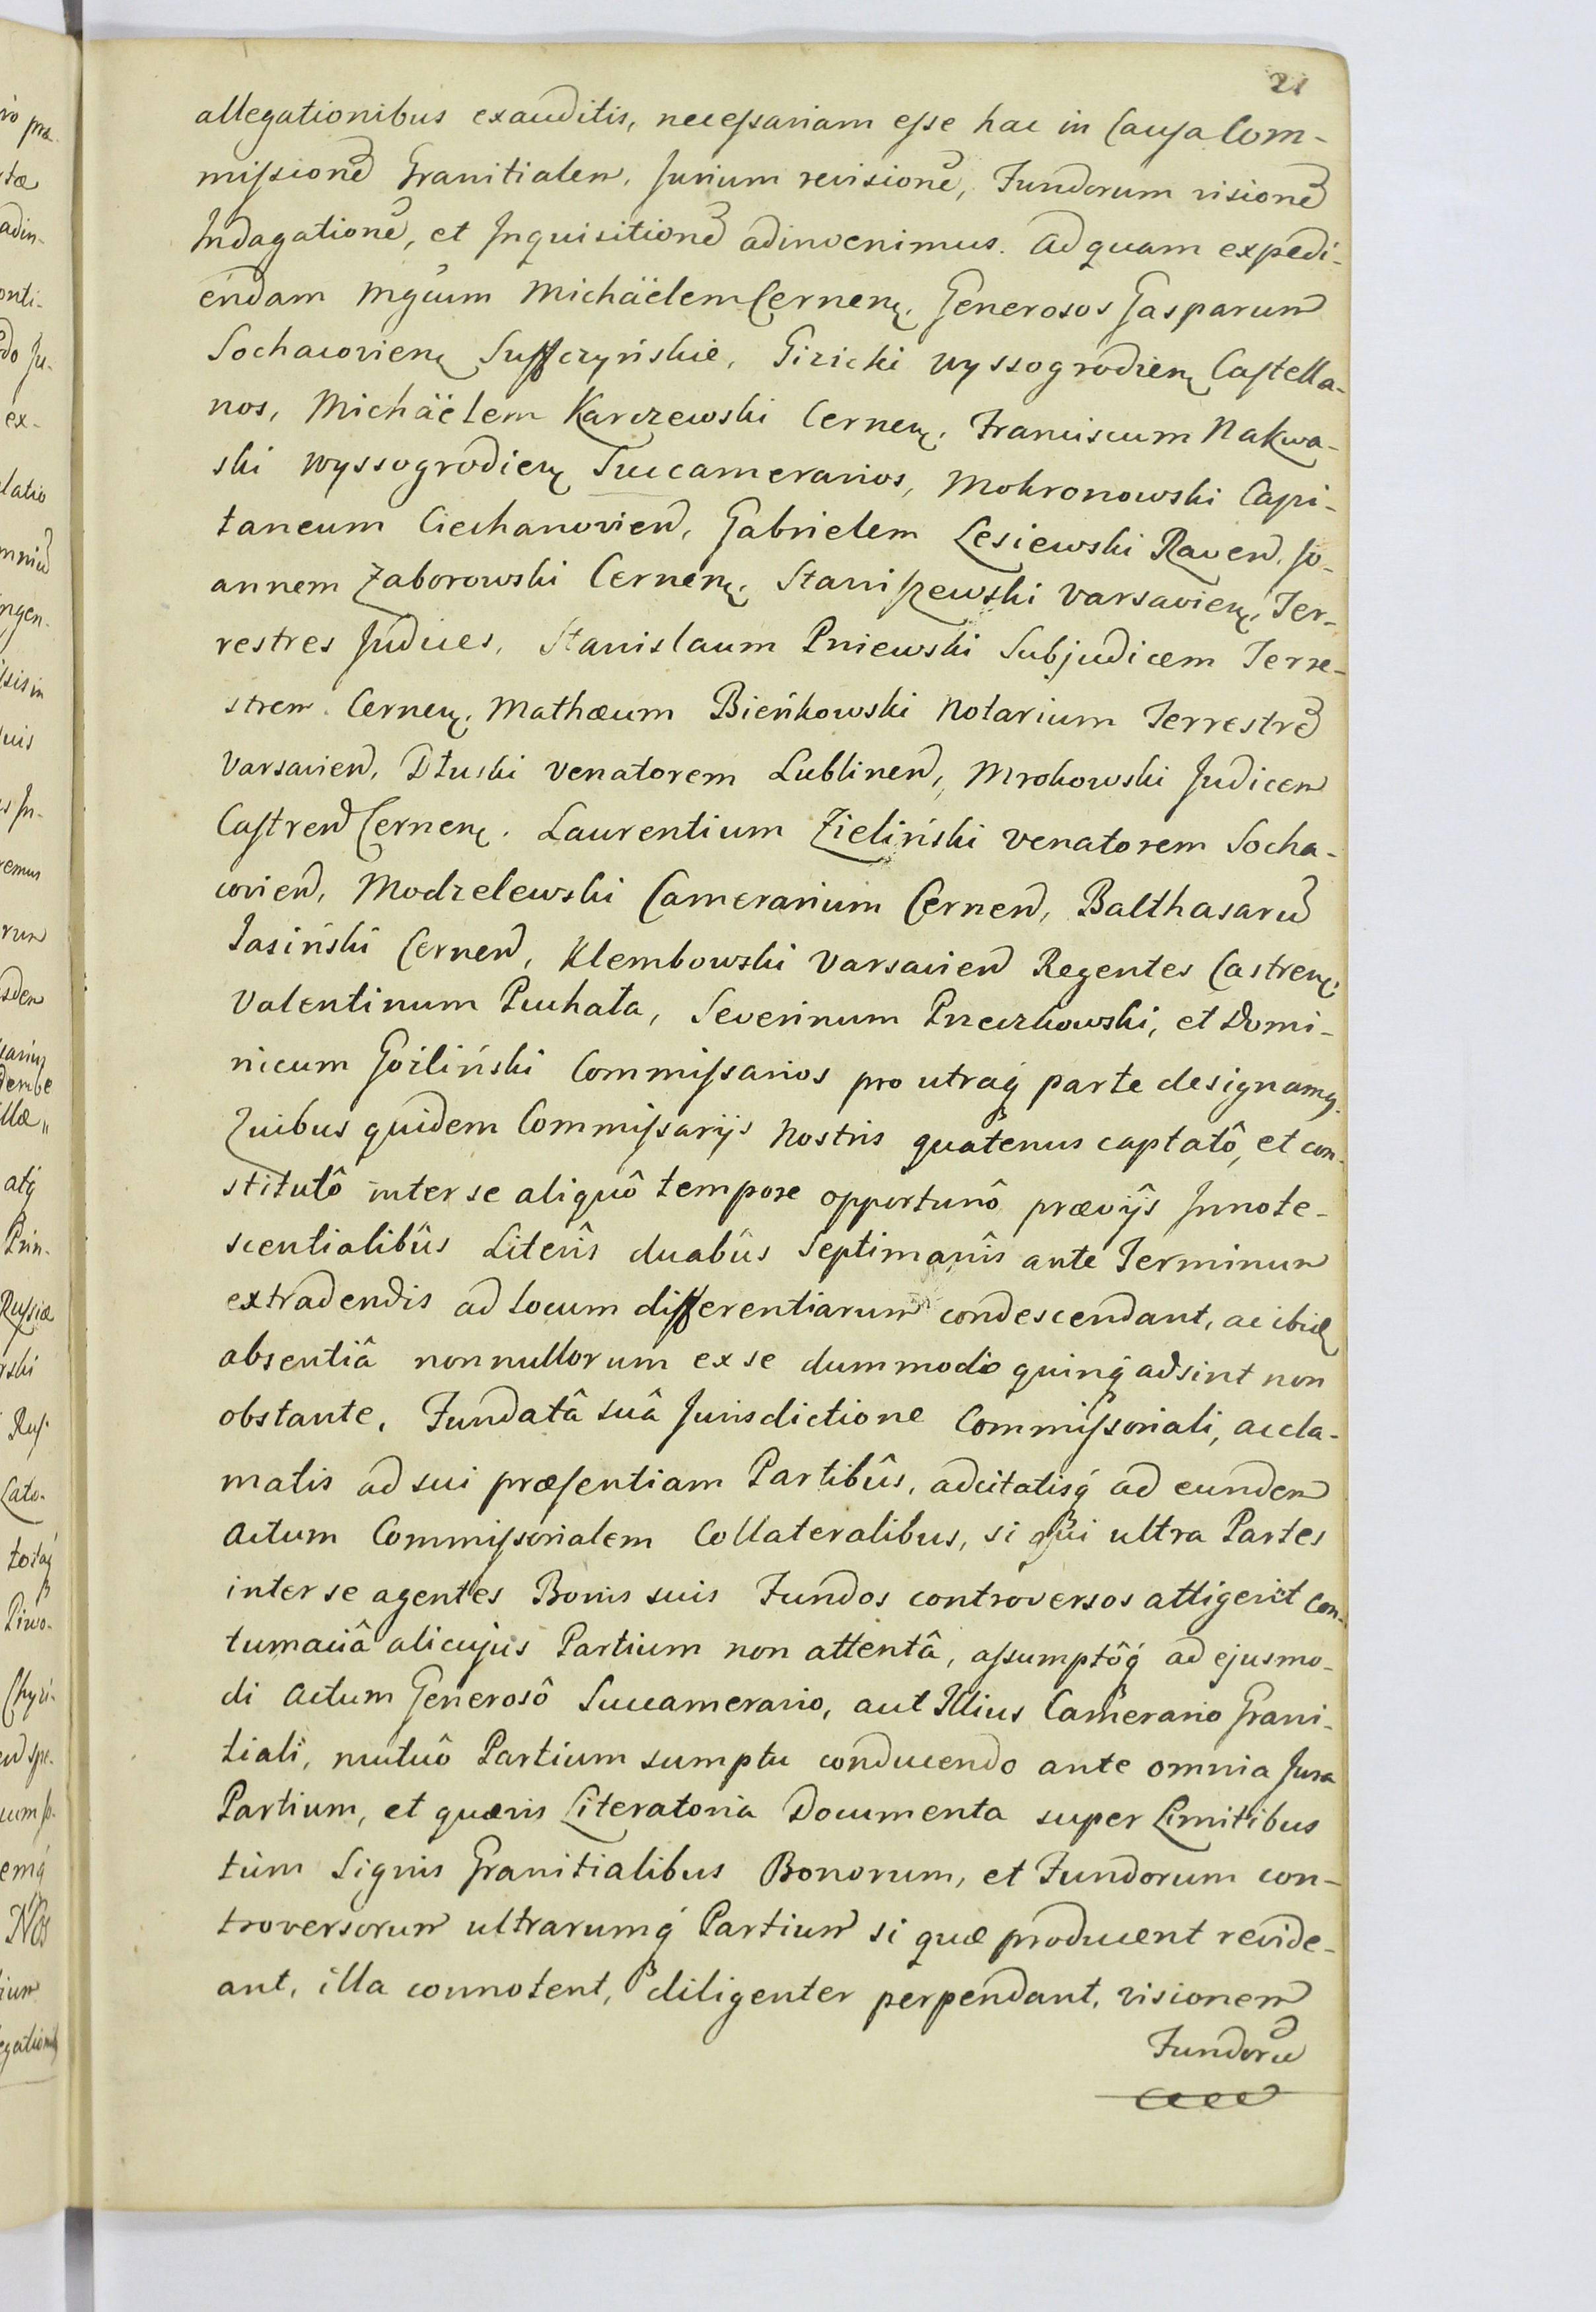 21
allegationibus exauditis, necessariam esse hac in Causa Com-
missionem Granitialem, Jurium revisionem, Fundorum visionem
Indagationem, et Inquisitionem adinvenimus. Ad quam expedi-
endam Mgcum Michäelem Cernen. Generosos Gasparum
Sochacovien Suffczyńskie, Gizicki Wyssogrodien Castella-
nos, Michäelem Karczewski Cernen. Franciscum Nakwa-
ski Wyssogrodien Succamerarios, Mokronowski Capi-
taneum Ciechanovien, Gabrielem Lesiewski Raven. Jo-
annem Zaborowski Cernen. Staniszewski Varsavien. Ter-
restres Judices, Stanislaum Pniewski Subjudicem Terre-
strem Cernen. Mathæum Bieńkowski Notarium Terrestrem
Varsavien, Dłuski Venatorem Lublinen, Mrokowski Judicem
Castren Cernen. Laurentium Zieliński Venatorem Socha-
covien, Modzelewski Camerarium Cernen, Balthasarum
Jasiński Cernen, Klembowski Varsavien Regentes Castren.
Valentinum Puchała, Severinum Przeczkowski, et Domi-
nicum Goźliński Commissarios pro utraq parte designamus.
Quibus quidem Commissarijs Nostris quatenus captatô, et con-
stitutô inter se aliquô tempore opportunô præviîs Innote-
scentialibûs Literîs duabûs Septimanîs ante Terminum
extradendis ad locum differentiarum condescendant, ac ibid
absentiâ nonnullorum ex se dummodo quinq adsint non
obstante, Fundatâ suâ Jurisdictione Commissoriali, accla-
matis ad sui præsentiam Partibûs, adcitatisq ad eundem
Actum Commissorialem Collateralibus, si qui ultra Partes
inter se agentes Bonis suis Fundos controversos attigerit con-
tumaciâ alicujus Partium non attentâ, assumptôq ad ejusmo-
di Actum Generosô Succamerario, aut Illius Camerario Grani-
tiali, mutuô Partium sumptu conducendo ante omnia Jura
Partium, et quævis Literatoria Documenta super Limitibus
tùm Signis Granitialibus Bonorum, et Fundorum con-
troversorum ultrarumq Partium si quæ producent revide-
ant, illa connotent, diligenter perpendant, visionem
Fundorum